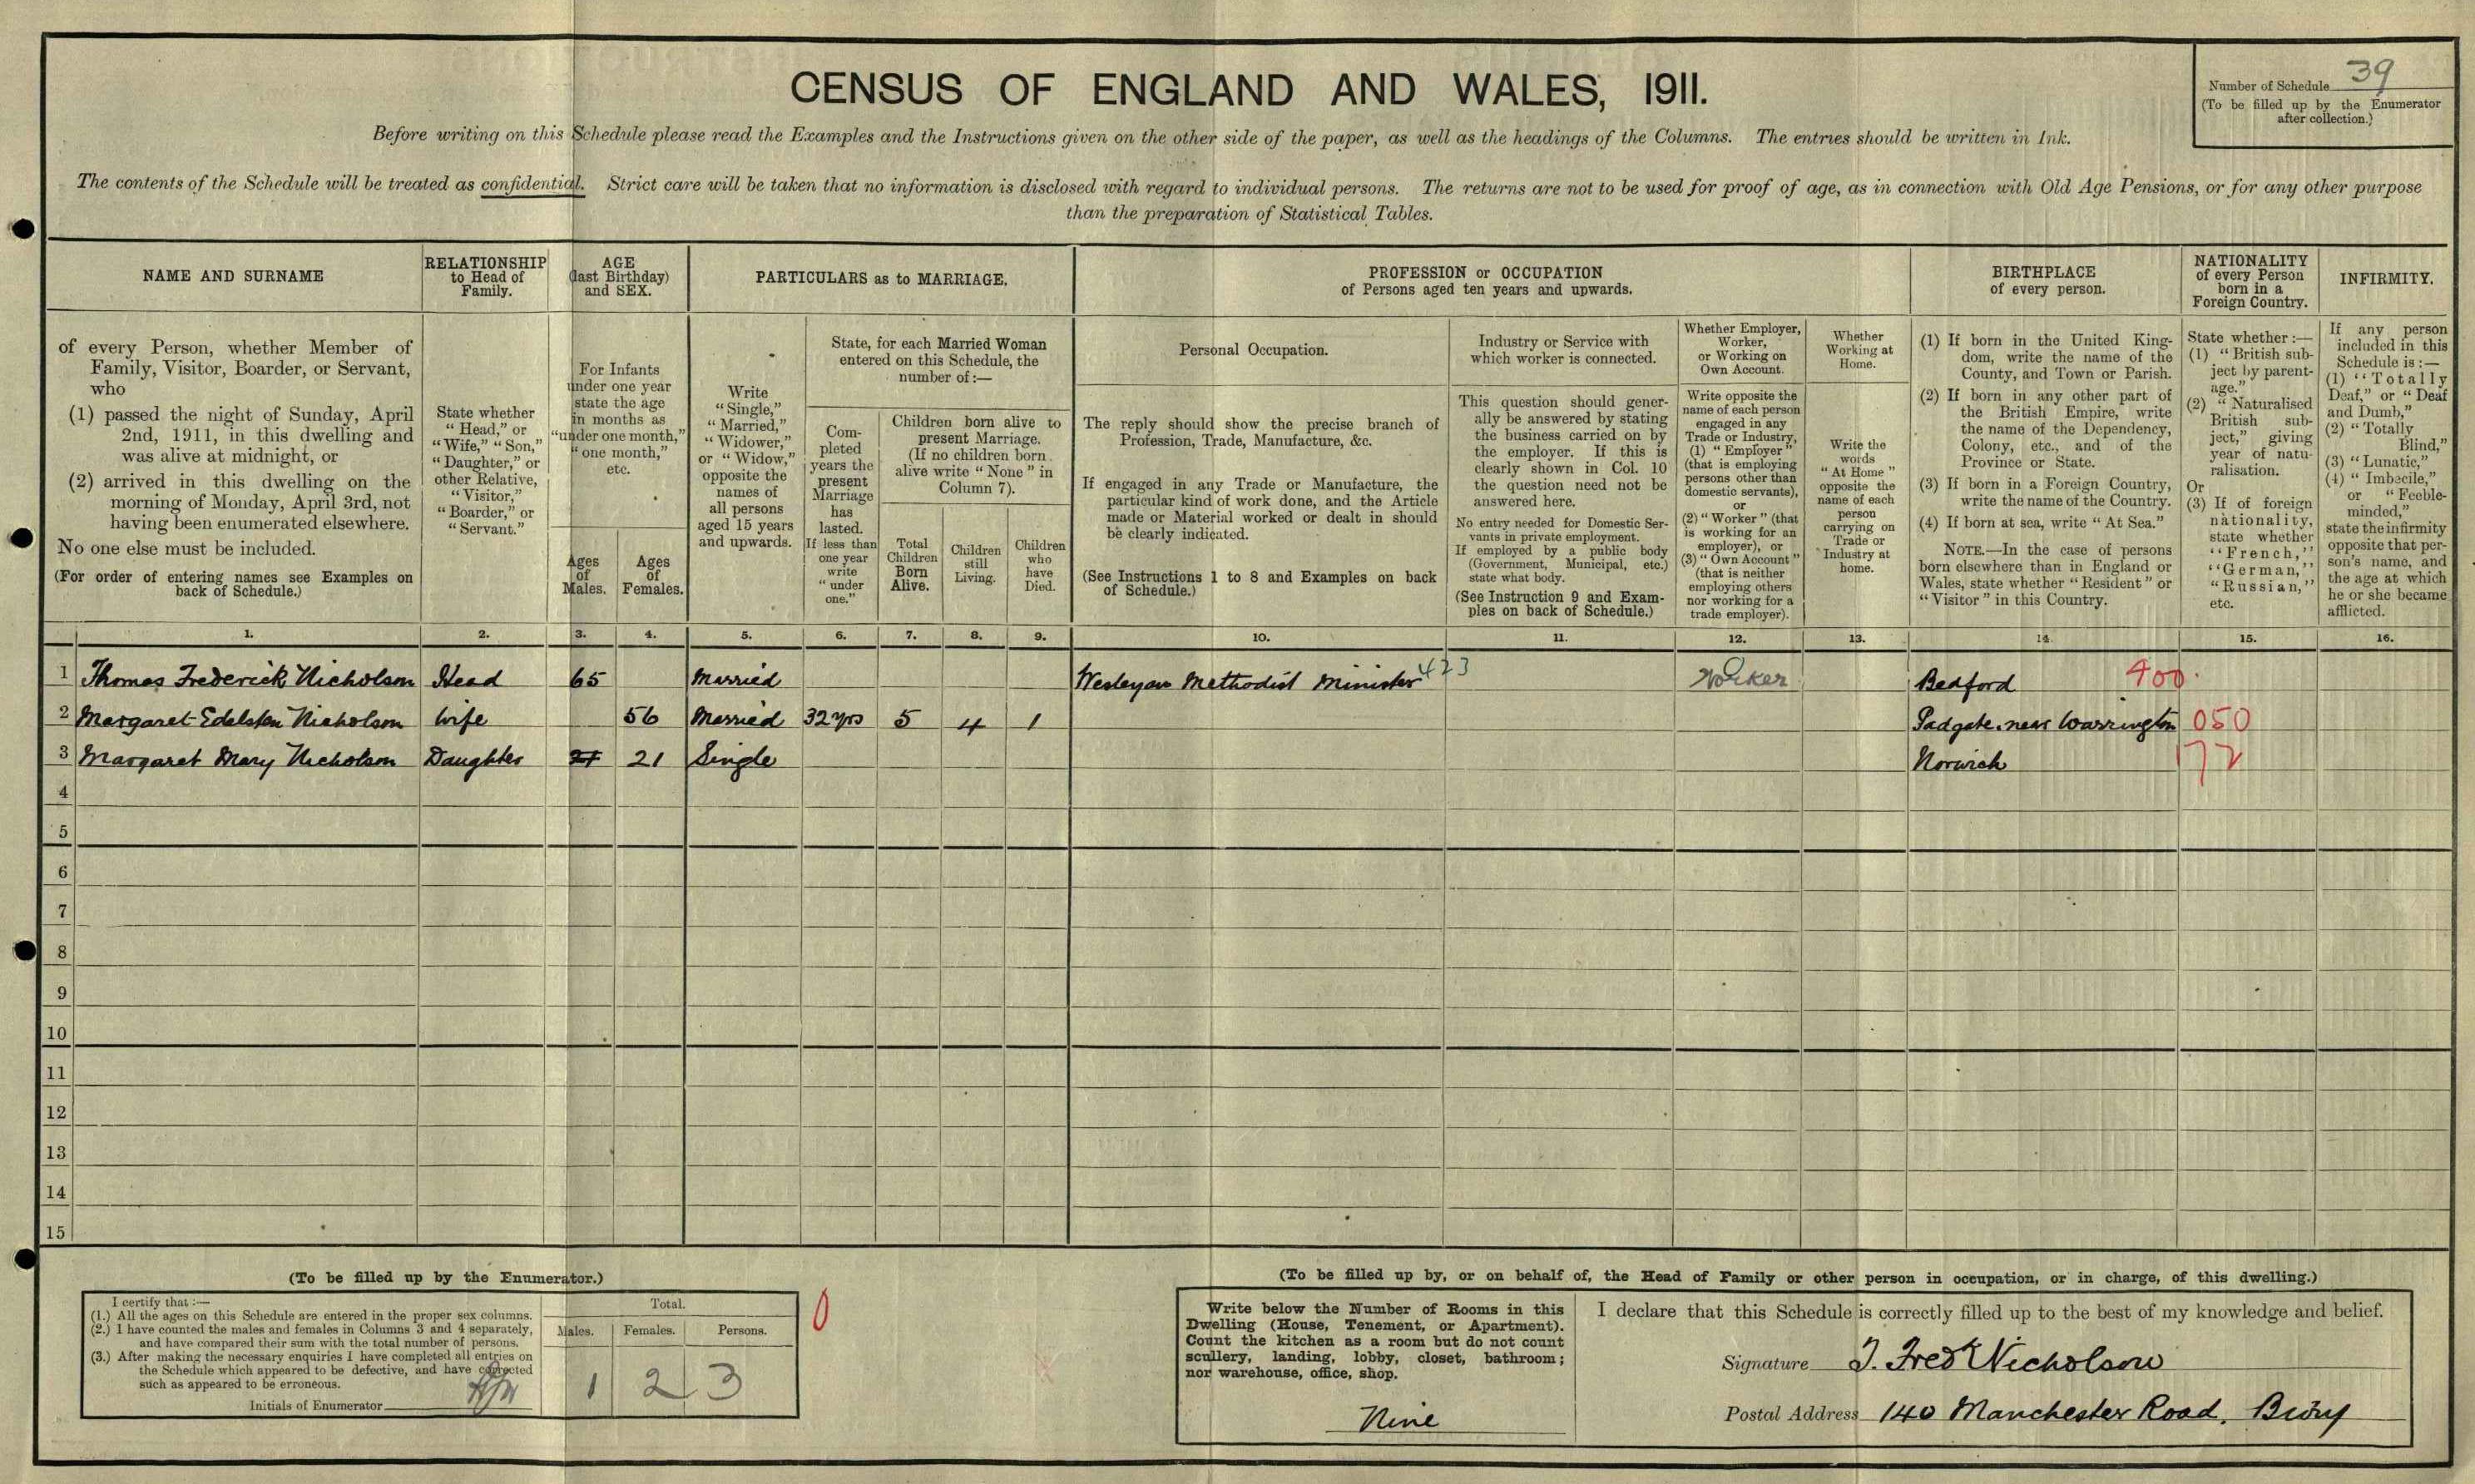 CENSUS OF ENGLAND AND WALES, 1911.
Number of Schedule 39
(To be filled up by the Enumerator
after collection.)
Before writing on this Schedule please read the Examples and the Instructions given on the other side of the paper, as well as the headings of the Columns. The entries should be written in Ink.
The contents of the Schedule will be treated as confidential. Strict care will be taken that no information is disclosed with regard to individual persons. The returns are not to be used for proof of age, as in connection with Old Age Pensions, or for any other purpose
than the preparation of Statistical Tables.
NAME AND SURNAME
of every Person, whether Member of
Family, Visitor, Boarder, or Servant,
who
(1) passed the night of Sunday, April
2nd, 1911, in this dwelling and
was alive at midnight, or
(2) arrived in this dwelling on the
morning of Monday, April 3rd, not
having been enumerated elsewhere.
No one else must be included.
(For order of entering names see Examples on
back of Schedule.)
RELATIONSHIP
to Head of
Family.
State whether
"Head," or
"Wife," "Son,"
"Daughter," or
other Relative,
"Visitor,"
"Boarder," or
"Servant."
AGE
(last Birthday)
and SEX.
For Infants
under one year
state the age
in months as
"under one month,"
"one month,"
etc.
Ages
of
Males.
Ages
of
Females.
PARTICULARS as to MARRIAGE.
Write
"Single,"
"Married,"
"Widower,"
or "Widow,"
opposite the
names of
all persons
aged 15 years
and upwards.
State, for each Married Woman
entered on this Schedule, the
number of:—
Com-
pleted
years the
present
Marriage
has
lasted.
If less than
one year
write
"under
one."
Children born alive to
present Marriage.
(If no children born
alive write "None" in
Column 7).
Total
Children
Born
Alive.
Children
still
Living.
Children
who
have
Died.
PROFESSION or OCCUPATION
of Persons aged ten years and upwards.
Personal Occupation.
The reply should show the precise branch of
Profession, Trade, Manufacture, &c.
If engaged in any Trade or Manufacture, the
particular kind of work done, and the Article
made or Material worked or dealt in should
be clearly indicated.
(See Instructions 1 to 8 and Examples on back
of Schedule.)
Industry or Service with
which worker is connected.
This question should gener-
ally be answered by stating
the business carried on by
the employer. If this is
clearly shown in Col. 10
the question need not be
answered here.
No entry needed for Domestic Ser-
vants in private employment.
If employed by a public body
(Government, Municipal, etc.)
state what body.
(See Instruction 9 and Exam-
ples on back of Schedule.)
Whether Employer,
Worker,
or Working on
Own Account.
Write opposite the
name of each person
engaged in any
Trade or Industry,
(1) "Employer"
(that is employing
persons other than
domestic servants),
or
(2) "Worker" (that
is working for an
employer), or
(3) "Own Account"
(that is neither
employing others
nor working for a
trade employer).
Whether
Working at
Home.
Write the
words
"At Home"
opposite the
name of each
person
carrying on
Trade or
Industry at
home.
BIRTHPLACE
of every person.
(1) If born in the United King-
dom, write the name of the
County, and Town or Parish.
(2) If born in any other part of
the British Empire, write
the name of the Dependency,
Colony, etc., and of the
Province or State.
(3) If born in a Foreign Country,
write the name of the Country.
(4) If born at sea, write "At Sea."
NOTE.—In the case of persons
born elsewhere than in England or
Wales, state whether "Resident" or
"Visitor" in this Country.
NATIONALITY
of every Person
born in a
Foreign Country.
State whether:—
(1) "British sub-
ject by parent-
age."
(2) "Naturalised
British sub-
ject," giving
year of natu-
ralisation.
Or
(3) If of foreign
nationality,
state whether
"French,"
"German,"
"Russian,"
etc.
INFIRMITY.
If any person
included in this
Schedule is:—
(1) "Totally
Deaf," or "Deaf
and Dumb,"
(2) "Totally
Blind,"
(3) "Lunatic,"
(4) "Imbecile,"
or "Feeble-
minded,"
state the infirmity
opposite that per-
son's name, and
the age at which
he or she became
afflicted.
1. 2. 3. 4. 5. 6. 7. 8. 9. 10. 11. 12. 13. 14. 15. 16.
1 Thomas Frederick Nicholson Head 65 Married Wesleyan Methodist Minister 423 Worker Bedford 400
2 Margaret Edelsten Nicholson Wife 56 Married 32 yrs 5 4 1 Padgate near Warrington 050
3 Margaret Mary Nicholson Daughter 21 21 Single Norwich 172
4
5
6
7
8
9
10
11
12
13
14
15
(To be filled up by the Enumerator.)
I certify that:—
(1.) All the ages on this Schedule are entered in the proper sex columns.
(2.) I have counted the males and females in Columns 3 and 4 separately,
and have compared their sum with the total number of persons.
(3.) After making the necessary enquiries I have completed all entries on
the Schedule which appeared to be defective, and have corrected
such as appeared to be erroneous.
Initials of Enumerator
Total.
Males. Females. Persons.
1 2 3
0
(To be filled up by, or on behalf of, the Head of Family or other person in occupation, or in charge, of this dwelling.)
Write below the Number of Rooms in this
Dwelling (House, Tenement, or Apartment).
Count the kitchen as a room but do not count
scullery, landing, lobby, closet, bathroom;
nor warehouse, office, shop.
Nine
I declare that this Schedule is correctly filled up to the best of my knowledge and belief.
Signature T. Fredk Nicholson
Postal Address 140 Manchester Road, Bury